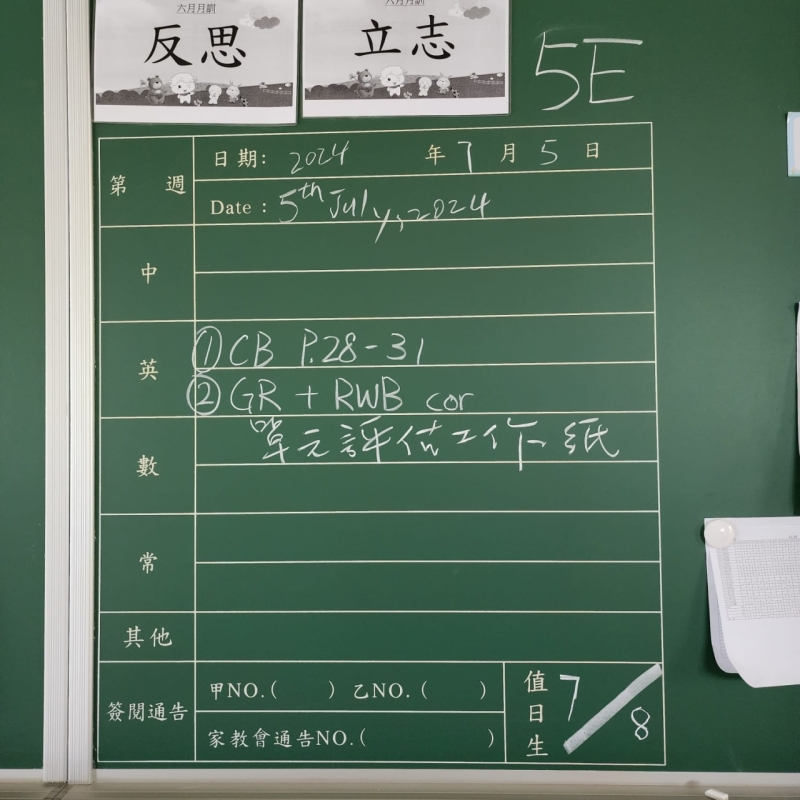 六月月訓
反思
六月月訓
立志
5E
第 週
日期: 2024 年 7 月 5 日
Date : 5th July, 2024
中
英
① CB P.28-31
② GR + RWB cor
數
單元評估工作紙
常
其他
簽閱通告
甲NO.( ) 乙NO.( )
家教會通告NO.( )
值日生
7/8